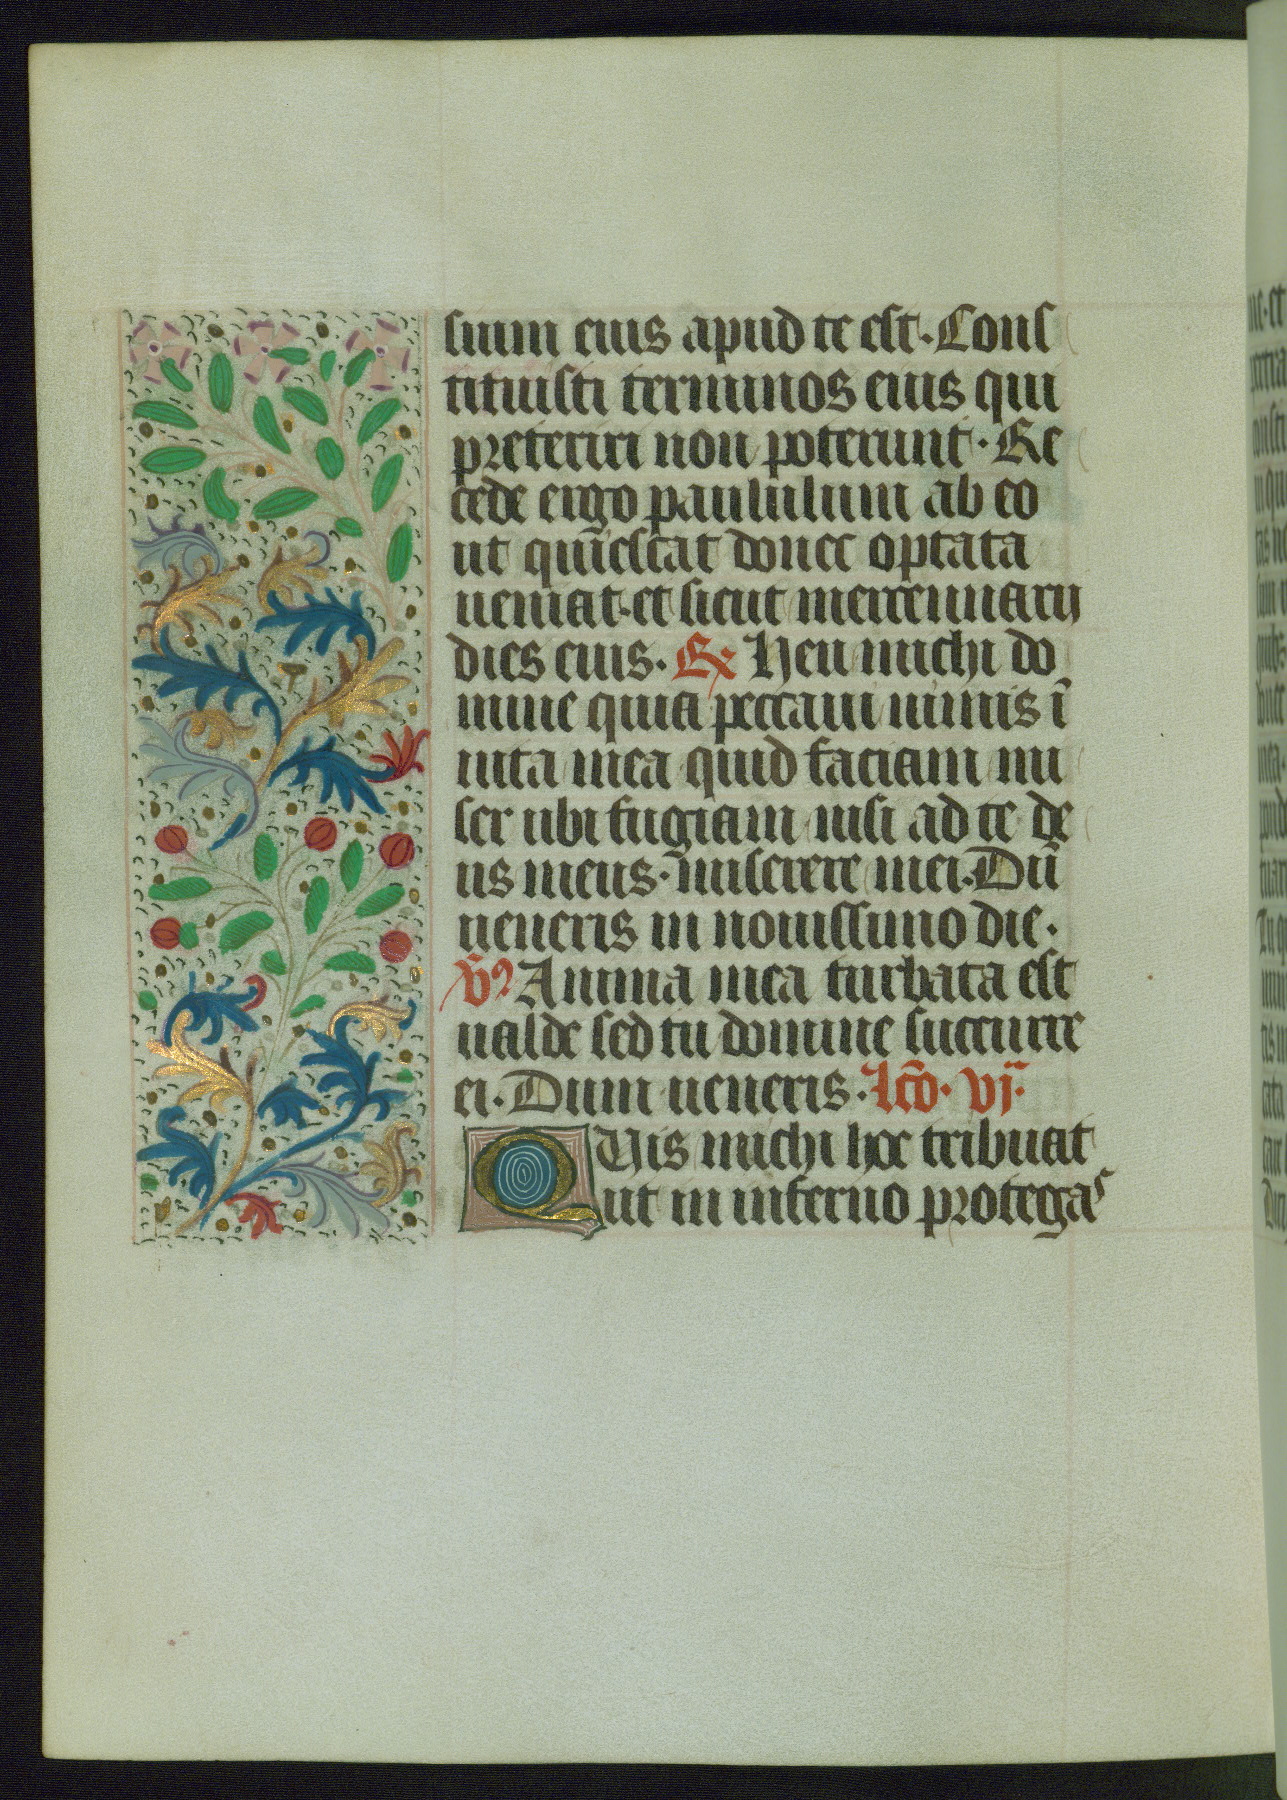 suum eius apud te est. Cons
tituisti terminos eius qui
preteriri non poterunt. Re
cede ergo paululum ab eo
ut quiescat donec optata
ueniat. et sicut mercennarij
dies eius. Rx Heu michi do
mine quia peccaui nimis ī
uita mea quid faciam mi
ser ubi fugiam nisi ad te de
us meus. miserere mei. Dū
ueneris in nouissimo die.
V̄9 Anima mea turbata est
ualde sed tu domine succurre
ei. Dum ueneris. Lcō. vj.
QUis michi hoc tribuat
ut in inferno protegas